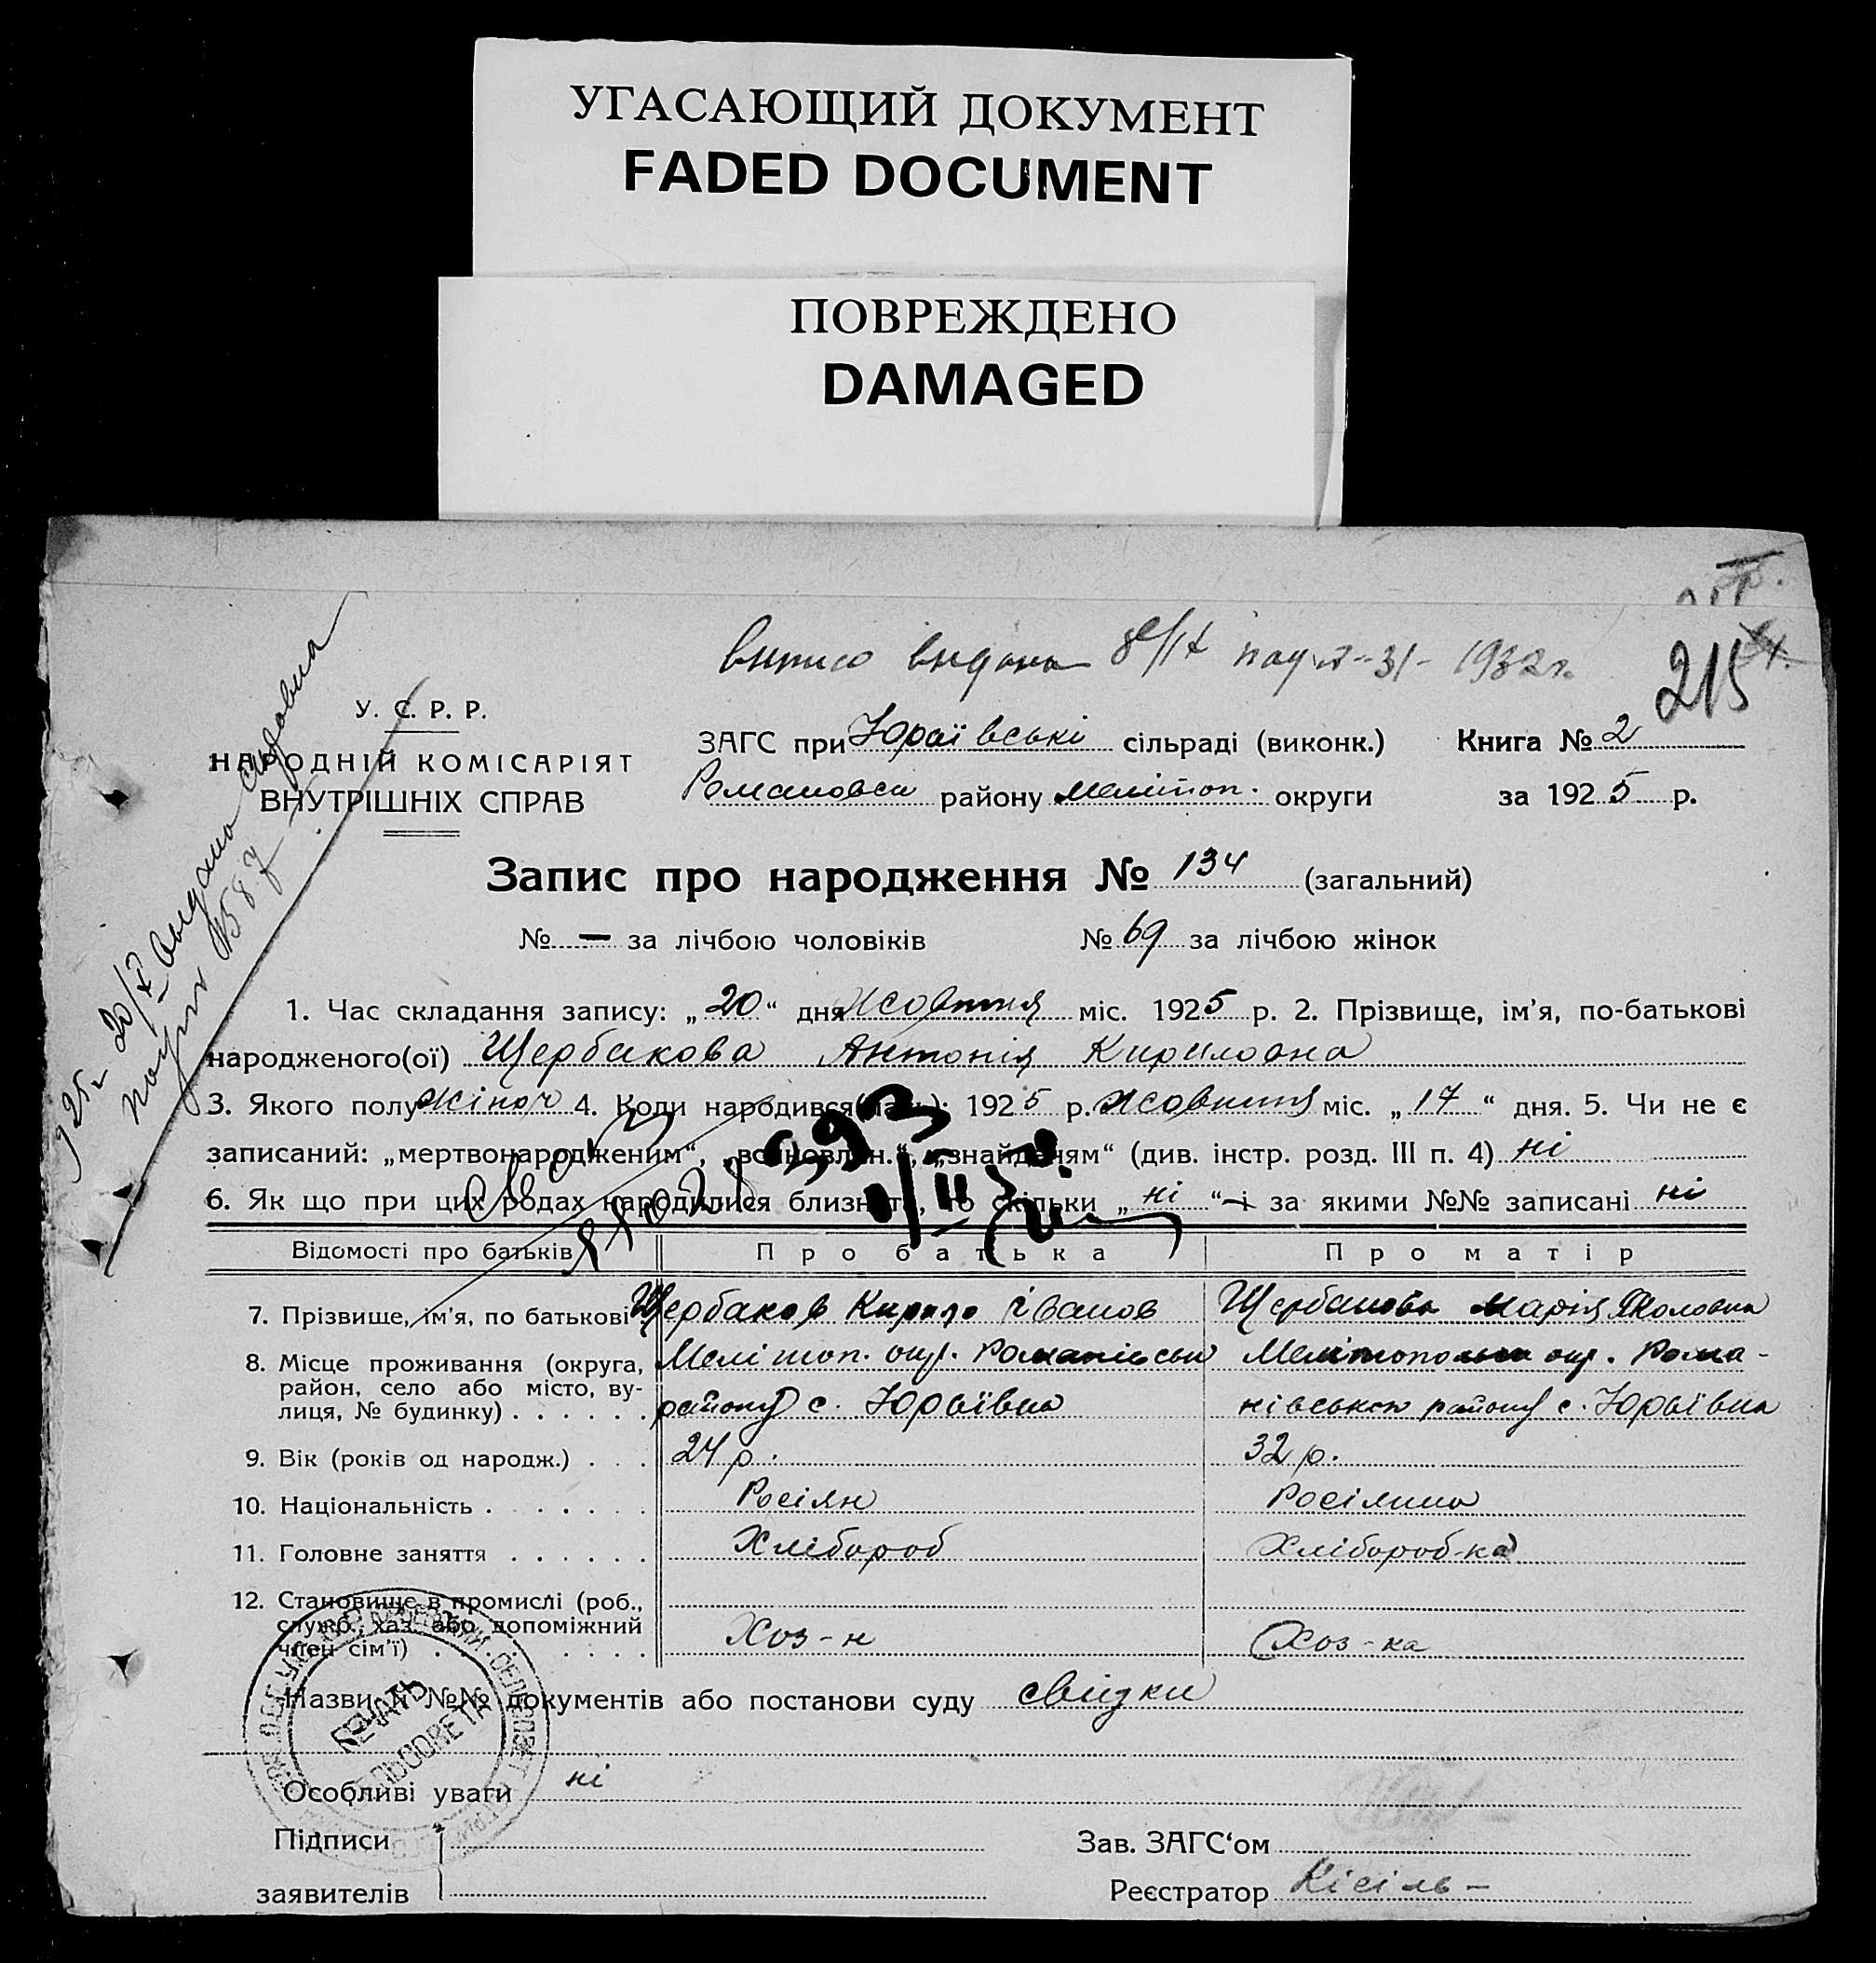 УГАСАЮЩИЙ ДОКУМЕНТ
FADED DOCUMENT
ПОВРЕЖДЕНО
DAMAGED
215
У. С. Р. Р.
НАРОДНІЙ КОМІСАРІЯТ
ВНУТРІШНІХ СПРАВ
ЗАГС при Юраївські сільраді (виконк.) Книга № 2
Романовск району мелітоп. округи за 1925 р.
Запис про народження № 134 (загальний)
№ — за лічбою чоловіків № 69 за лічбою жінок
1. Час складання запису: „20“ дня жовтня міс. 1925 р. 2. Прізвище, ім'я, по-батькові
народженого(ої) Щербакова Антонія Кириловна
3. Якого полу жіноч 4. Коли народився(лась): 1925 р. жовтня міс. „17“ дня. 5. Чи не є
записаний: „мертвонародженим“, „всиновлен.“, „знайденям“ (див. інстр. розд. III п. 4) ні
6. Як що при цих родах народилися близнята, то скільки „ні“ і за якими №№ записані ні
Відомості про батьків Про батька Про матір
7. Прізвище, ім'я, по батькові Щербаков Кирило Іванов Щербакова Марія
8. Місце проживання (округа, Мелітоп. окр. Романівськ Мелітопольк окр. Рома-
район, село або місто, ву- району с. Юрьївка нівськоя району с. Юрьївка
лиця, № будинку)
9. Вік (років од народж.) 24 р. 32 р.
10. Національність Росіян Росіянка
11. Головне заняття Хлібороб Хлібороб-ка
12. Становище в промислі (роб.,
служб., хаз. або допоміжний Хоз-н Хоз-ка
член сім'ї)
Назви й №№ документів або постанови суду свідки
ПЕЧАТЬ
СЕЛЬСОВЕТА
Особливі уваги ні
Підписи Зав. ЗАГС‘ом
заявителів Реєстратор Кісіль